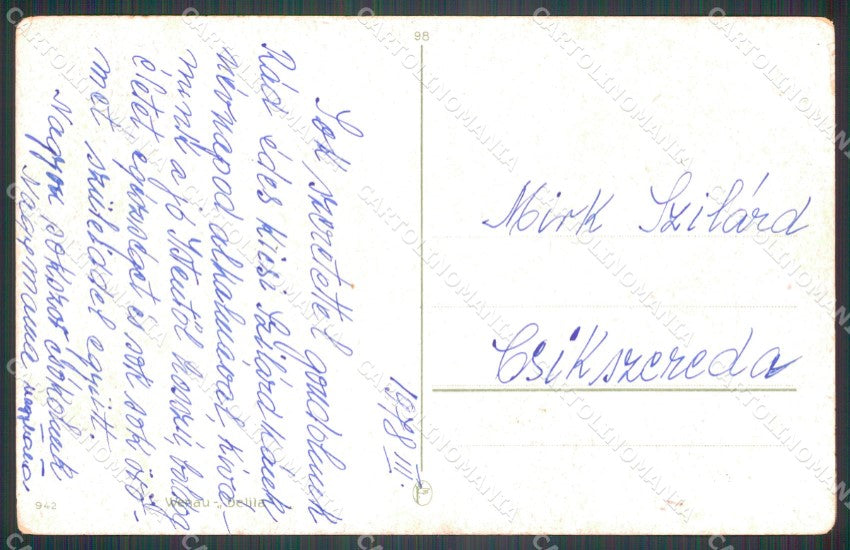 98
1978 III.
Sok szeretettel gondolunk
Rád édes kicsi Szilárdkánk
névnapod alkalmával, kívá-
nunk a jó Istentől hosszú, boldog
életet egészséget és sok sok örö-
met szüleiddel együtt.
Nagyon sokszor csókolunk
Nagymama
Mirk Szilárd
Csikszereda
942
Wenau - Delila
CARTOLINOMANIA